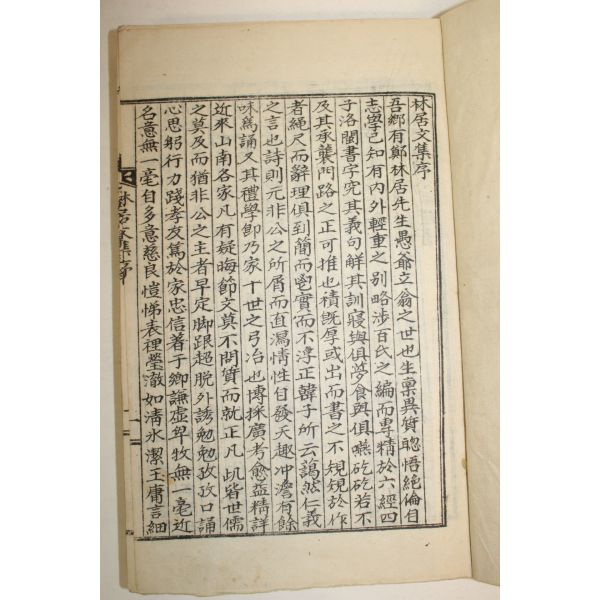 林居文集序
吾鄉有鄭林居先生愚爺立翁之世也生稟異質聰悟絶倫自
志學已知有內外輕重之別略涉百氏之編而專精於六經四
子洛閩書字究其義句解其訓寢與俱夢食與俱嚥矻矻若不
及其承襲門路之正可推也積旣厚或出而書之不規規於作
者繩尺而辭理俱到簡而實而不浮正韓子所云藹然仁義
之言也詩則元非公之所屑而直瀉情性自發天趣冲澹有餘
味爲誦又其禮學卽乃家十世之弓冶也博採廣考愈益精詳
近來山南各家凡有疑晦節文莫不問質而就正凡此皆世儒
之莫及而猶非公之主者早定脚跟超脫外誘勉勉孜孜口誦
心思躬行力踐孝友篤於家忠信著于鄕謙虛卑牧無一毫近
名意無一毫自多意慈良愷悌表裡瑩澈如淸氷潔玉庸言細
林居文集序
一